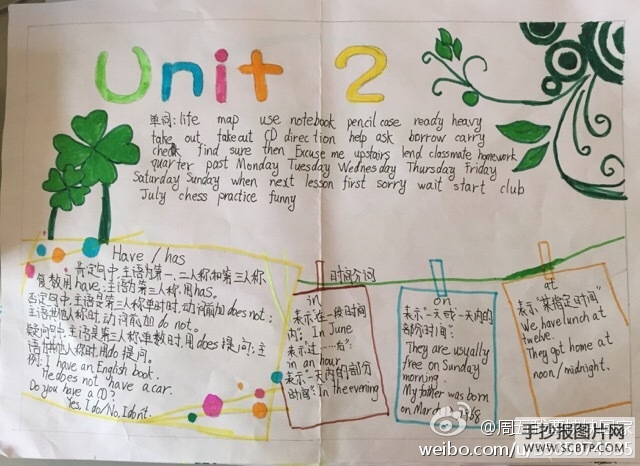 Unit 2
单词: life map use notebook pencil case ready heavy
take out takeout CD direction help ask borrow carry
check find sure then Excuse me upstairs lend classmate homework
quarter past Monday Tuesday Wednesday Thursday Friday
Saturday Sunday when next lesson first sorry wait start club
July chess practice funny
Have / has
肯定句中,主语为第一、二人称和第三人称
复数用have;主语为第三人称,用has。
否定句中,主语是第三人称单时时,动词前加does not;
主语其他人称时,动词前加do not。
疑问句中,主语是第三人称单数时,用does提问;主
语为其他人称时,用do提问。
例: I have an English book.
He does not have a car.
Do you have a CD?
Yes, I do/No, I dont.
时间介词
in
表示在一段时间
内: In June
表示过"……后"
in an hour
表示一天内的部分
时间": In the evening
on
表示"一天或一天内的
部分时间":
They are usually
free on Sunday
morning.
My father was born
on March 1, 1958.
at
表示"某指定时间"
We have lunch at
twelve.
They got home at
noon/midnight.
手抄报图片网
WWW.SCBTP.COM
weibo.com/u